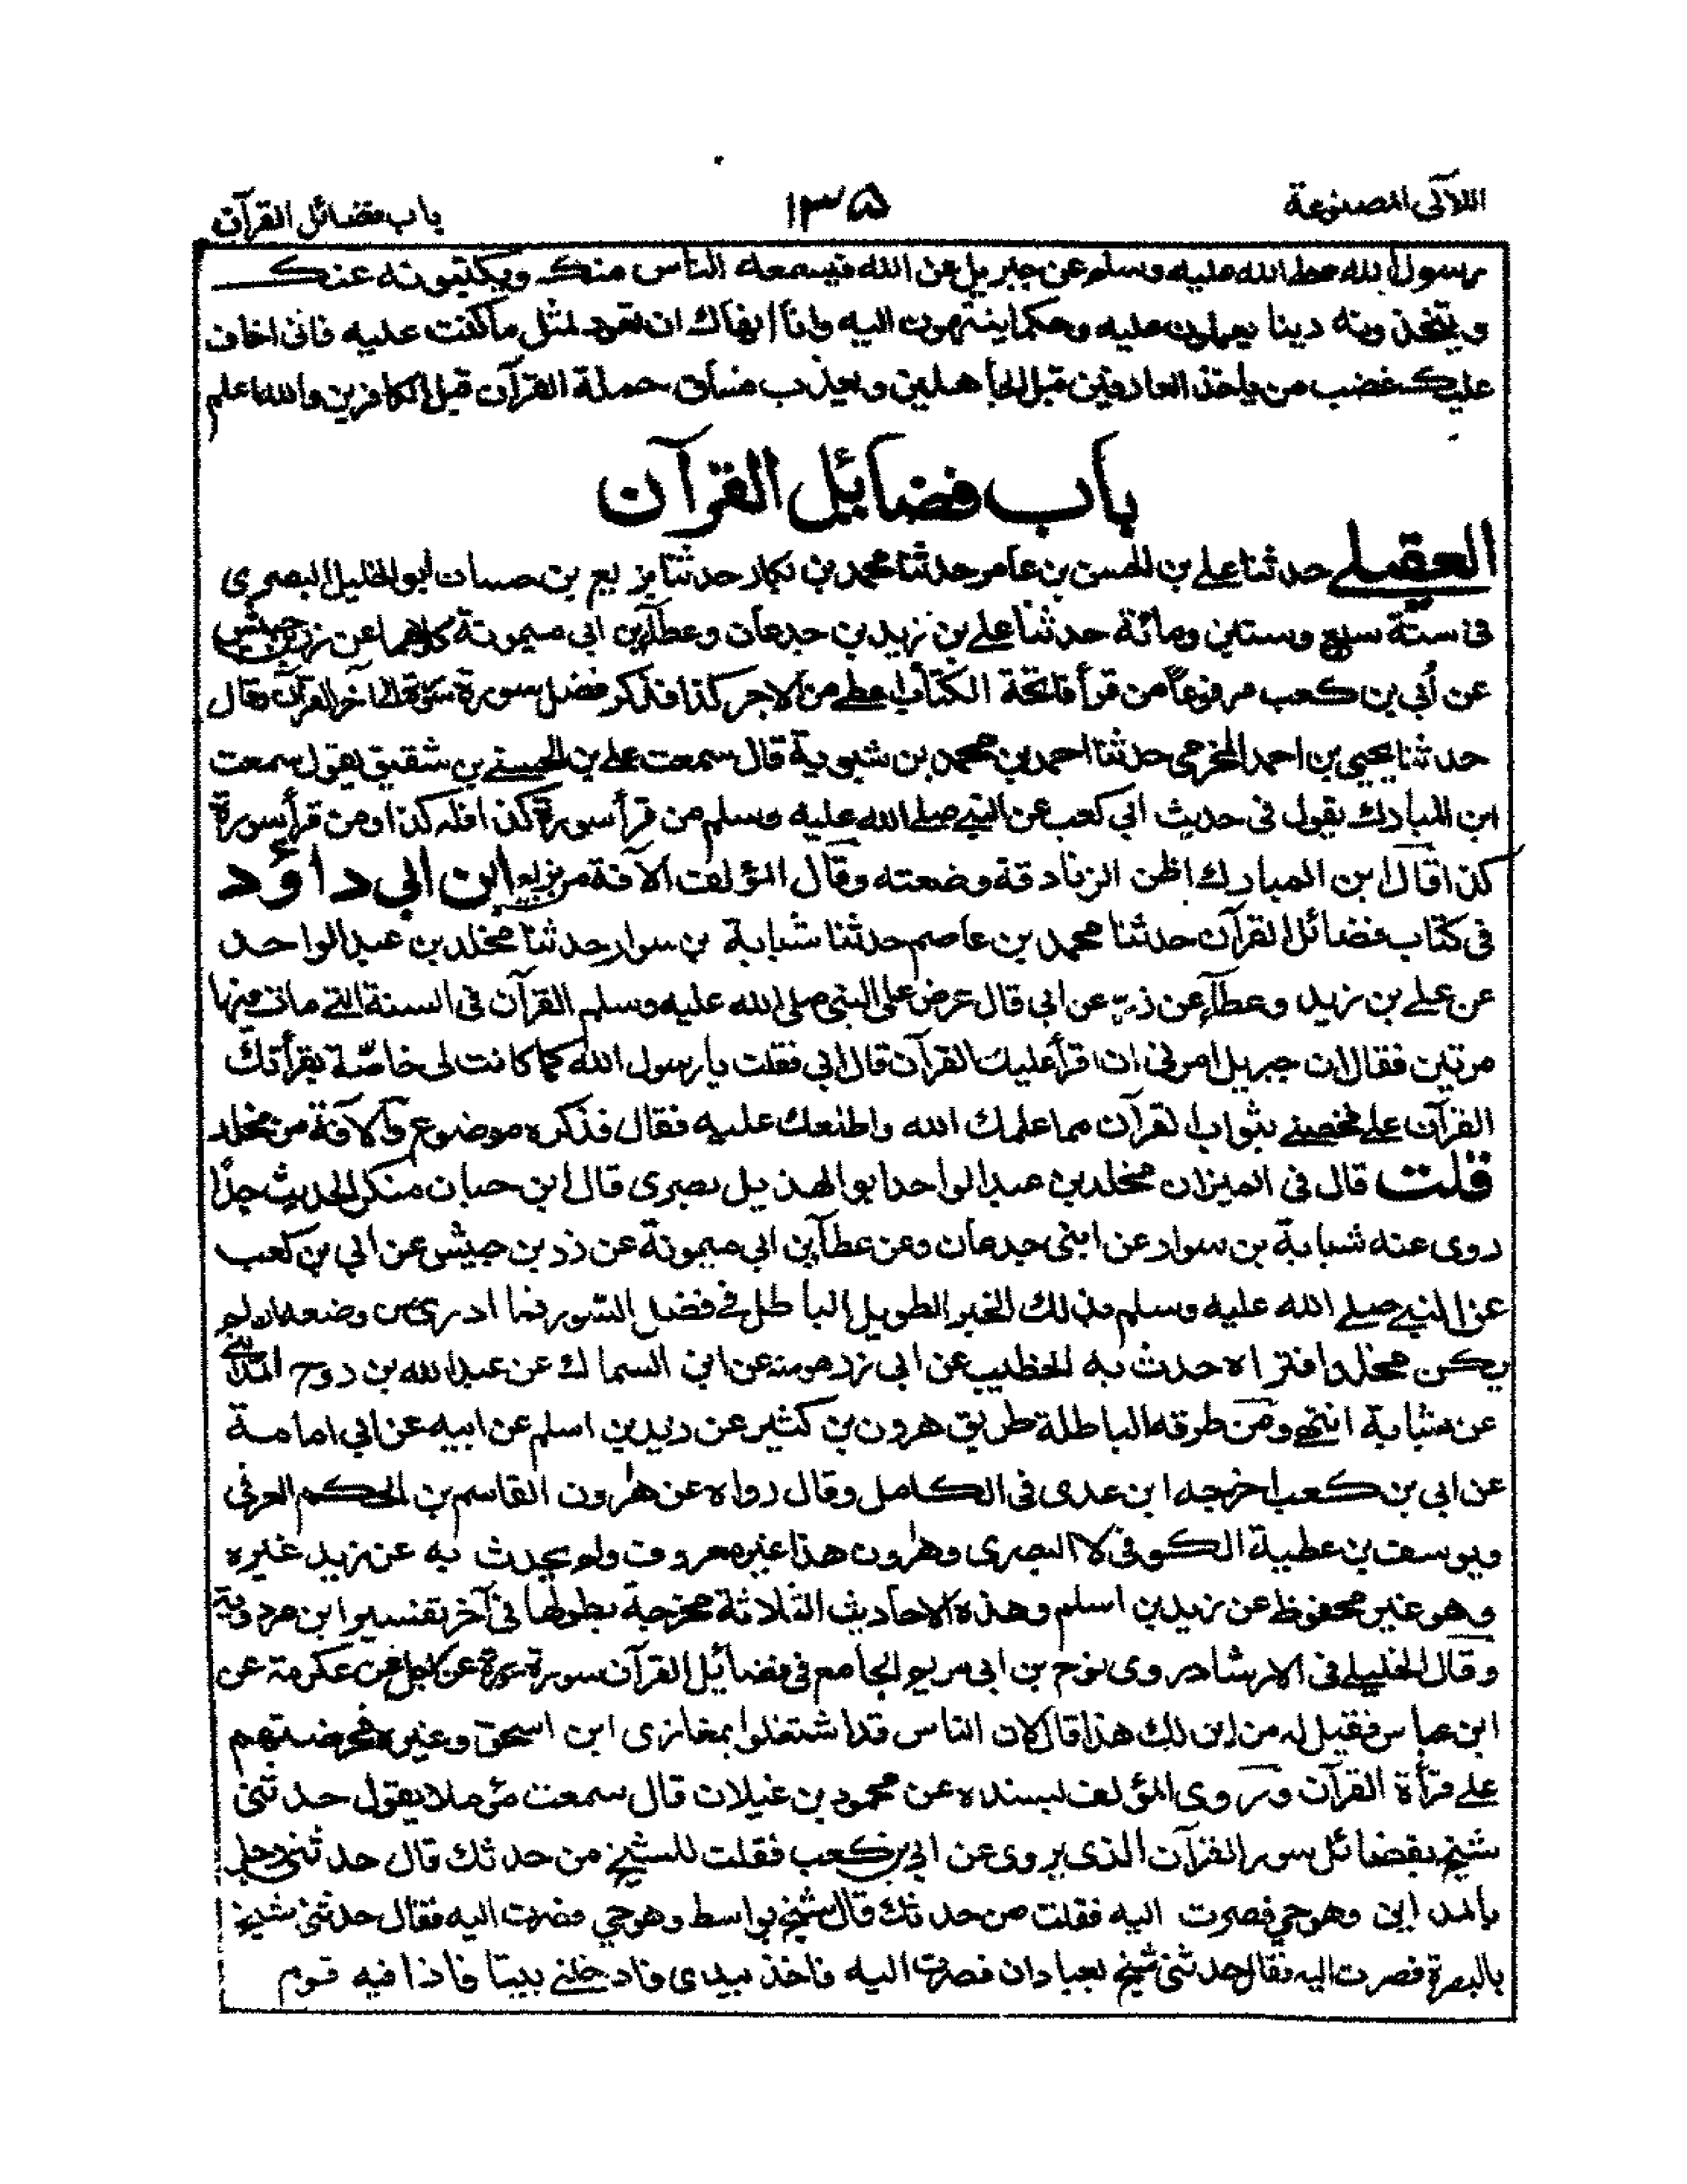 اللآلى المصنوعة
١٣٥
باب فضائل القرآن
رسول الله صلى الله عليه وسلم عن جبريل عن الله فيسمعه الناس منك ويكتبونه عنك
ويتخذونه دينا يعملون عليه وحكما ينتهون اليه وانا انهاك ان تعود لمثل ما كنت عليه فانى اخاف
عليك غضب من ياخذ العارفين قبل الجاهلين ويعذب فساق حملة القرآن قبل الكافرين والله اعلم
باب فضائيل القرآن
العقيلے حدثنا علے بن الحسن بن عامر حدثنا محمد بن بكار حدثنا بزيع بن حسان ابو الخليل البصرى
فى سنة سبع وستين ومائة حدثنا علے بن زيد بن جدعان وعطآء بن ابى ميمونة كلاهما عن زر بن حبيش
عن أبي بن كعب مرفوعاً من قرأ فاتحة الكتاب اعطے من الاجر كذا فذكر فضل سورة سورة الى آخر القرآن وقال
حدثنا يحيى بن احمد المخرمى حدثنا احمد بن محمد بن شبوية قال سمعت علے بن الحسن بن شقيق يقول سمعت
ابن المبارك يقول فى حديث ابي كعب عن النبے صلے الله عليه وسلم من قرأ سورة كذا فله كذا ومن قرأ سورة
كذا قال ابن المبارك اظن الزنادقة وضعته وقال المؤلف الآفة من بزيع ابن ابي داؤد
فى كتاب فضائل القرآن حدثنا محمد بن عاصم حدثنا شبابة بن سوار حدثنا مخلد بن عبد الواحد
عن علے بن زيد وعطآء عن زر عن ابى قال عرض على النبى صلى الله عليه وسلم القرآن فى السنة التے مات فيها
مرتين فقال ان جبريل امرنى ان اقرأ عليك القرآن قال ابي فقلت يا رسول الله كما كانت لى خاصّة بقرأتك
القرآن علے فخصنے بثواب القرآن مما علمك الله واطلعك عليه فقال فذكره موضوع وآلآفة من مخلد
قلت قال فى الميزان مخلد بن عبد الواحد ابو الهذيل بصرى قال ابن حبان منكر الحديث جدًا
روى عنه شبابة بن سوار عن ابن جدعان وعن عطآء بن ابى ميمونة عن زر بن حبيش عن ابي بن كعب
عن النبے صلے الله عليه وسلم بذلك الخبر الطويل الباطل فے فضل السّور فما ادرى من وضعه ان لم
يكن مخلد افتراه حدث به الخطيب عن ابى زرقويه عن ابن السماك عن عبد الله بن روح المدائنے
عن شبابة انتهے ومن طرقه الباطلة طريق هرون بن كثير عن زيد بن اسلم عن ابيه عن ابي امامة
عن ابي بن كعب اخرجه ابن عدى فى الكامل وقال رواه عن هٰرون القاسم بن الحكم العرنى
ويوسف بن عطية الكوفى لا البصرى وهٰرون هذا غير معروف ولم يحدث به عن زيد غيره
وهو غير محفوظ عن زيد بن اسلم وهذه الاحاديث الثلاثة مخرجة بطولها فى آخر تفسير ابن مردوية
وقال الخليلے فى الارشاد روى نوح بن ابى مريم الجامع فى فضائيل القرآن سورة سورة عن رجل عن عكرمة عن
ابن عباس فقيل له من اين لك هذا قال لان الناس قد اشتغلوا بمغازى ابن اسحق وغيره فحرضتهم
علے قرأة القرآن وروى المؤلف بسنده عن محمود بن غيلان قال سمعت مؤملا يقول حدثنى
شيخ بفضائل سور القرآن الذى يروى عن ابي بن كعب فقلت للشيخ من حدثك قال حدثنى رجل
بالمداين وهو حي فصرت اليه فقلت من حدثك قال شيخ بواسط وهو حي فصرت اليه فقال حدثنى شيخ
بالبصرة فصرت اليه فقال حدثنى شيخ بعبادان فصرت اليه فاخذ بيدى فادخلنے بيتا فاذا فيه قوم